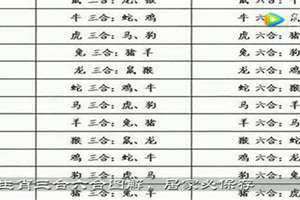 牛 三合：蛇、鸡 牛 六合：
虎 三合：马、狗 虎 六合：猪
兔 三合：猪 羊 兔 六合：狗
龙 三合：鼠 猴 龙 六合：鸡
蛇 三合：鸡、牛 蛇 六合：猴
马 三合：虎、狗 马 六合：羊
羊 三合：兔、猪 羊 六合：马
猴 三合：鼠、龙 猴 六合：蛇
鸡 三合：蛇、牛 鸡 六合：龙
生肖三合六合图解，居家必保存